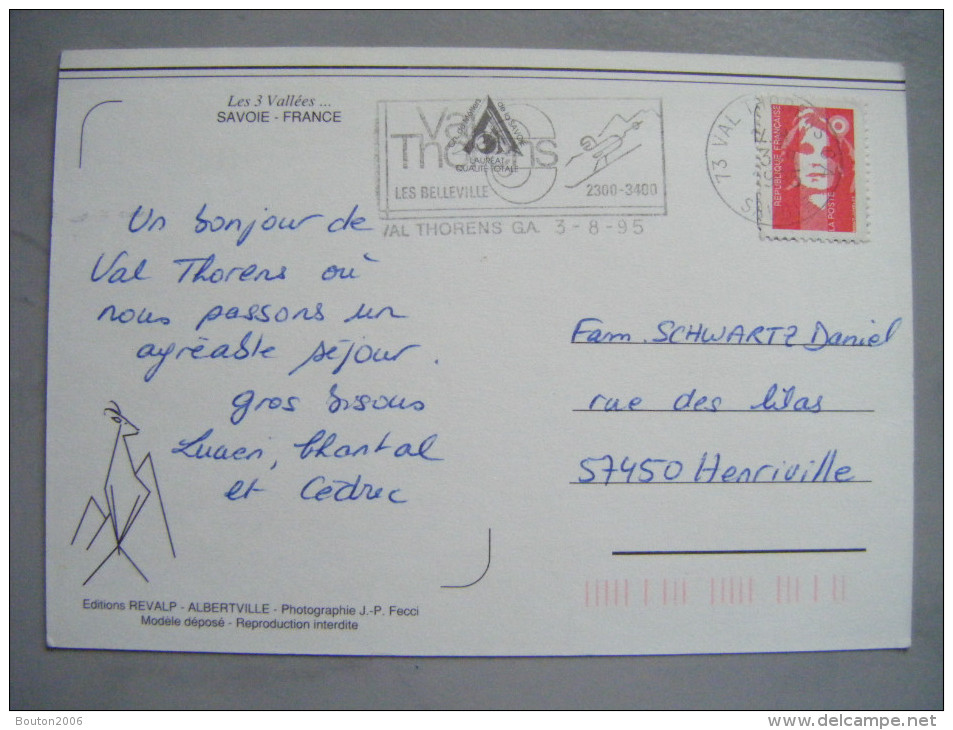 Les 3 Vallées ...
SAVOIE - FRANCE
Val
Thorens
de la Savoie
LAURÉAT
QUALITÉ TOTALE
LES BELLEVILLE
2300-3400
VAL THORENS GA. 3-8-95
73 VAL THO
RÉPUBLIQUE FRANÇAISE
LA POSTE
Un bonjour de
Val Thorens où
nous passons un
agréable séjour.
gros bisous
Lucien, Chantal
et Cédric
Fam. SCHWARTZ Daniel
rue des lilas
57450 Henriville
Editions REVALP - ALBERTVILLE - Photographie J.-P. Fecci
Modèle déposé - Reproduction interdite
Bouton2006
delcampe.net